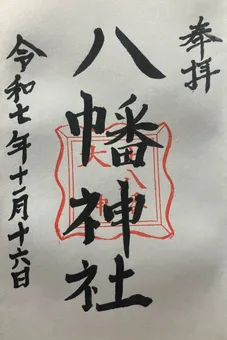 奉拝
八幡神社
令和七年十一月十六日